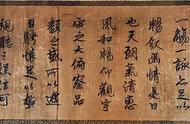 一觴一詠亦足以
暢敘幽情是日
也天朗氣清惠
風和暢仰觀宇
宙之大俯察品
類之盛所以遊
目騁懷足以極
視聽之娛信可